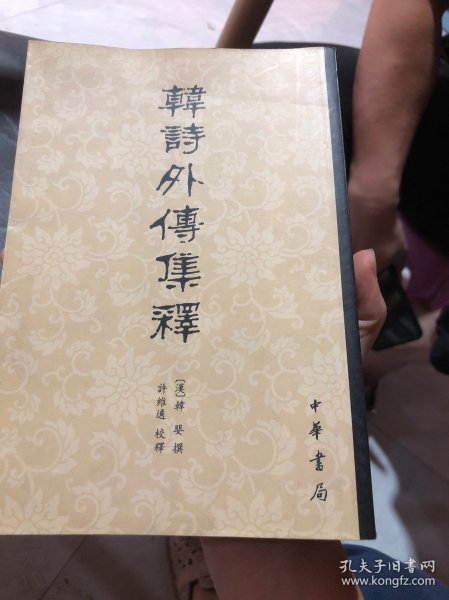 韓詩外傳集釋
〔漢〕韓嬰 撰
許維遹 校釋
中華書局
孔夫子旧书网
www.kongfz.com